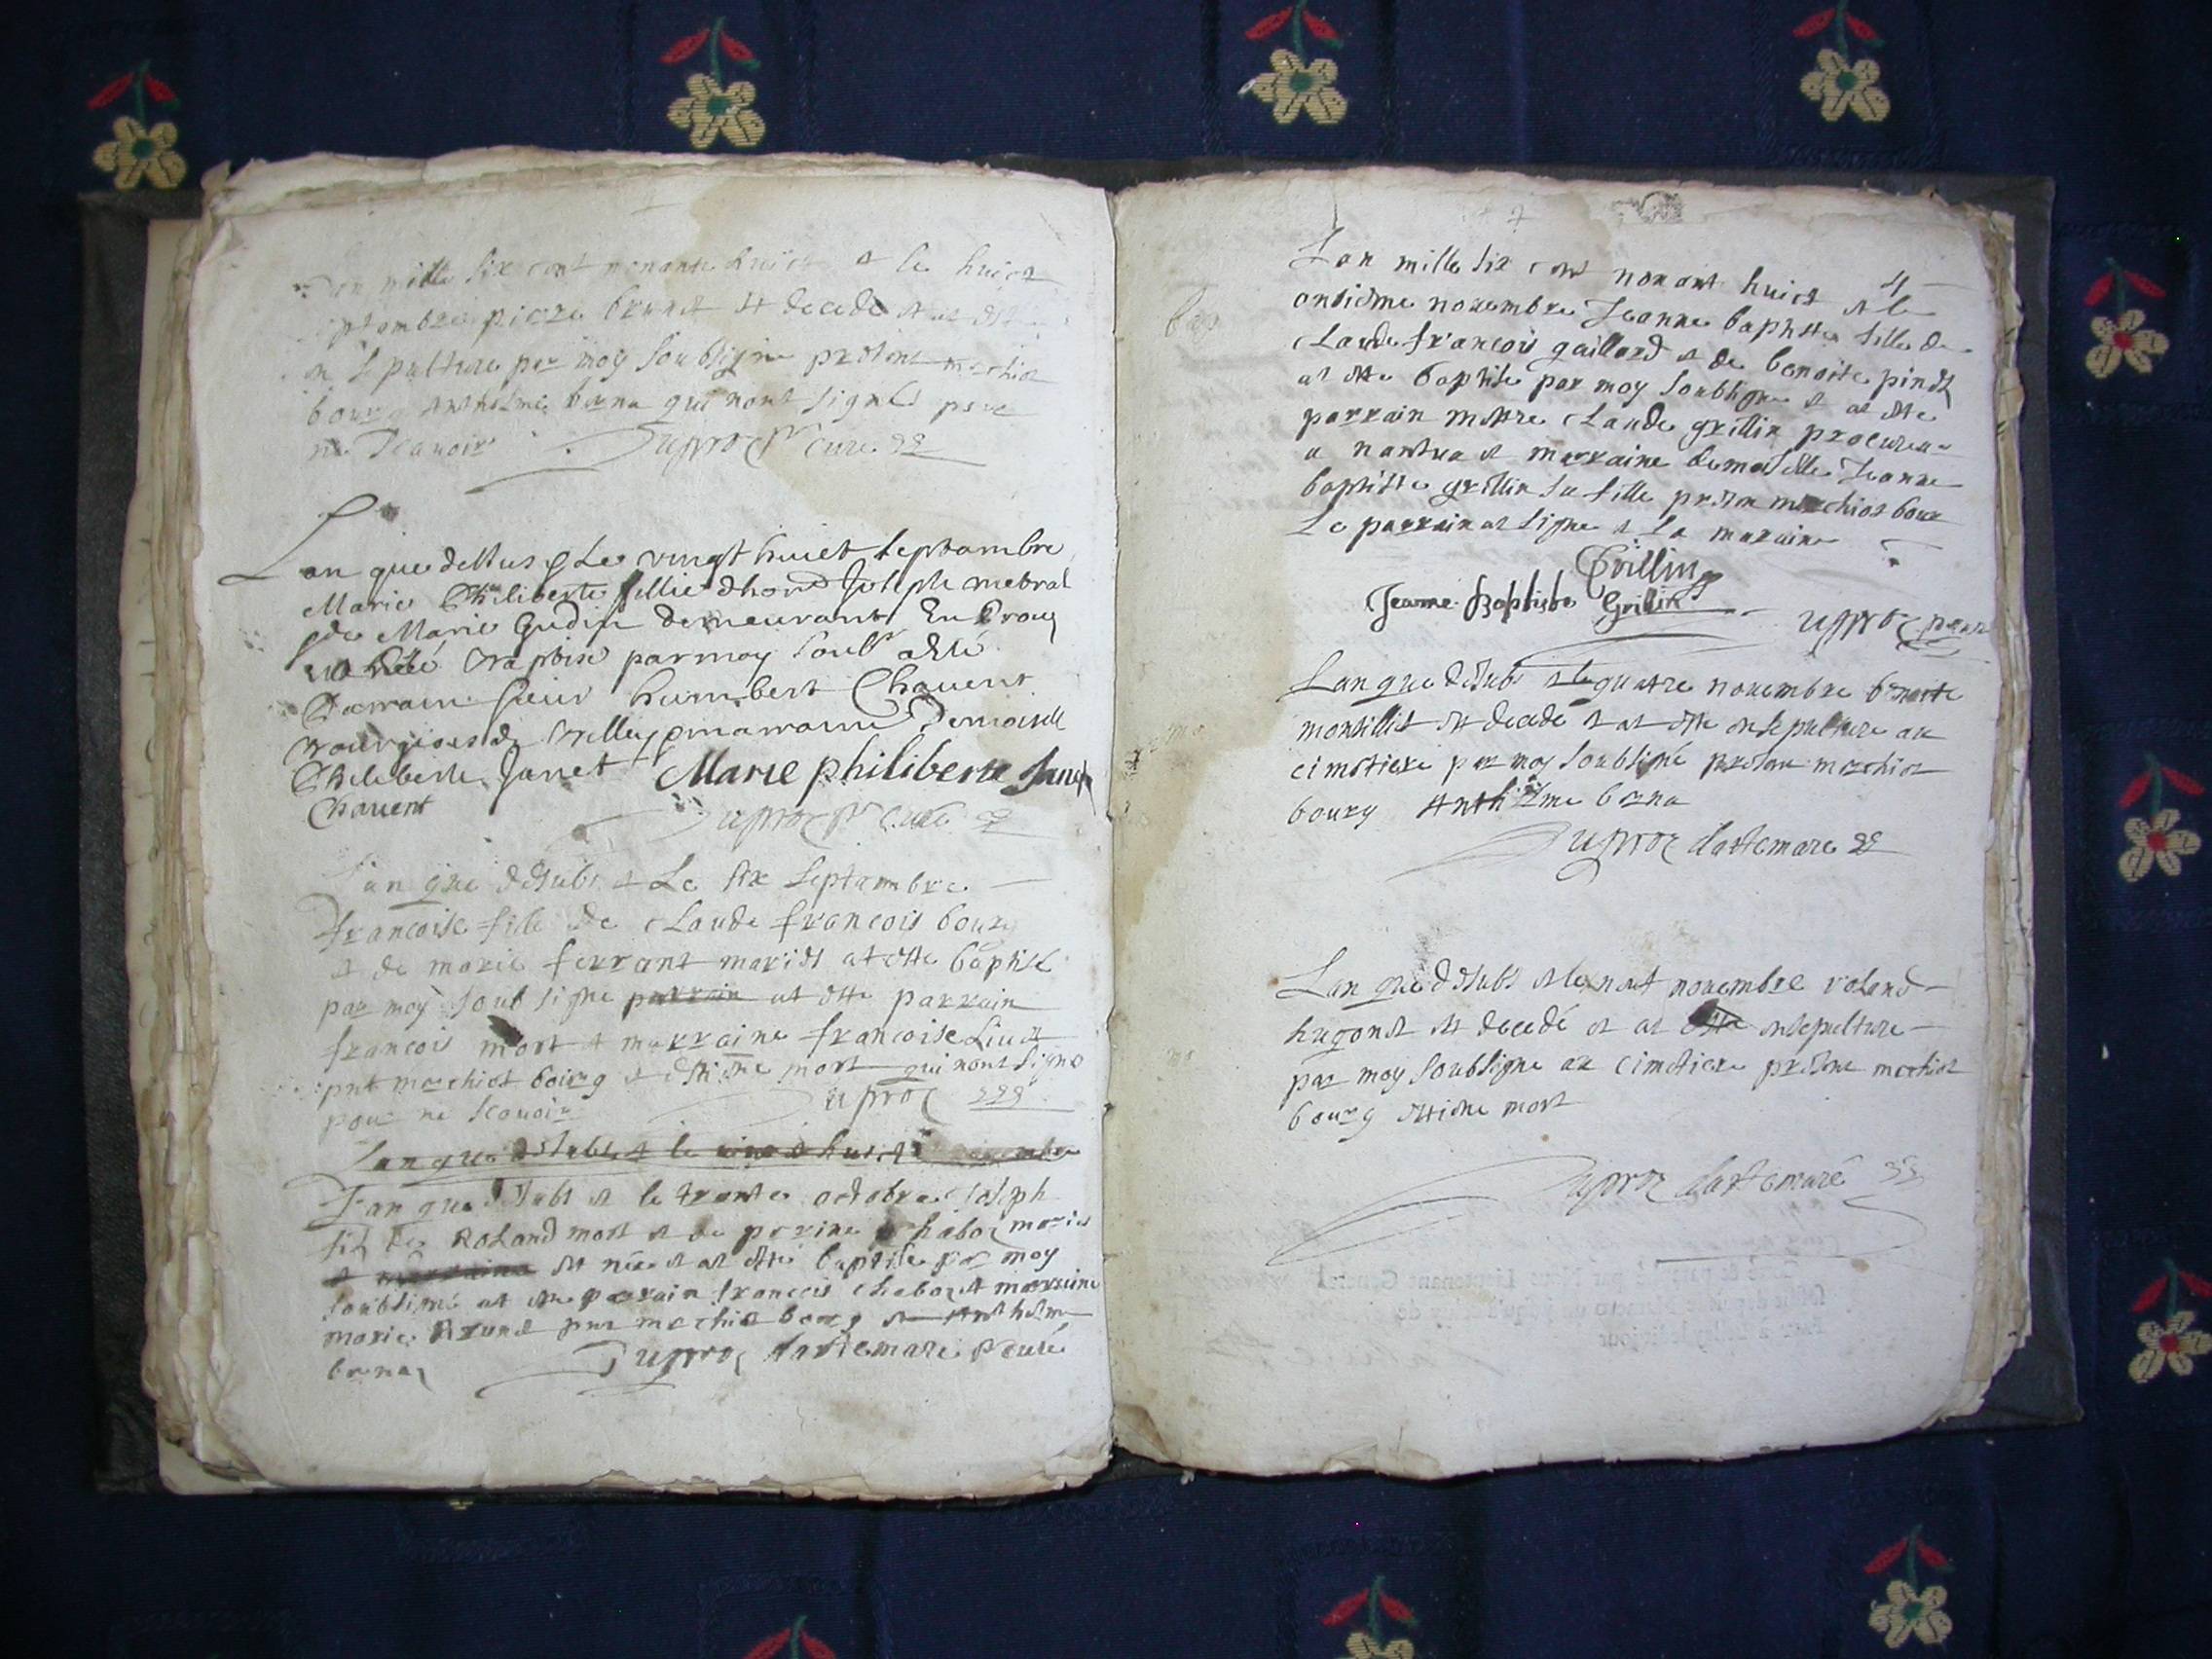 Lan mille six cent nonante huict et le huict
septembre pierre brunet est decede et at este
en sepulture par moy soubsigne present merchiot
bourg anthelme borna qui nont signes pour
ne scavoir Duproz pr cure
Lan que dessus & le vingt huict septambre
Marie Philiberte fillie dhon Joseph mebral
& de Marie Gudin demeurant En
esté baptise par moy soubs a esté
Parrain sieur humbert Chavent
bourgeois de belley & marraine Demoiselle
Philiberte Janet Marie philiberte Janet
Chavent
Duproz pr cure
Lan que dessubs et le six septambre
francoise fille de claude francois bourg
et de marie ferrant mariés at este baptisé
par moy soubsigne parrain at este parrain
francois mort et marraine francoise Liuet
pnt merchiot bourg et estiene mort qui nont signe
pour ne scavoir Duproz
Lan que dessubs et le vingt huict
Lan que dessubs et le trante octobre Joseph
filz de Roland mort et de perrine chaboz mariés
et marraine est née et at esté baptise par moy
soubsigné at este parrain francois chaboz et marraine
marie Brunet pnt merchiot bourg et Anthelme
borna Duproz dartemare pr curé
4
Lan mille six cent nonant huict et le
bap
onsiesme novembre Jeanne baptiste fille de
claude francois gaillard et de benoite pinet
at este baptisée par moy soubsigne et at este
parrain mettre claude grillin procureur
a nantua et marraine demoiselle Jeanne
baptiste grillin sa fille presen merchiot bour
Le parrain at signe et la maraine
Grillin
Jeanne Baptiste Grillin Duproz
Lan que dessubs et le quatre novembre benoite
montillet est decede et at este ensepulture au
cimetiere par moy soubsigné present merchiot
bourg Anthelme borna
Duproz dartemare
Lan que dessubs et le neuf novembre roland
hugonet est decedé et at este ensepulture
mo
par moy soubsigne au cimetiere present merchiot
bourg estiene mort
Duproz dartemare